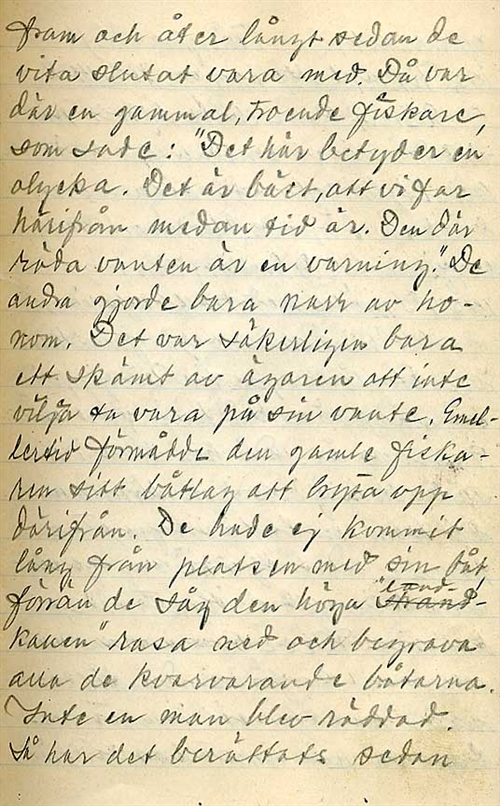 fram och åter långt sedan de
vita slutat vara med. Då var
där en gammal, troende fiskare,
som sade: "Det här betyder en
olycka. Det är bäst, att vi far
härifrån medan tid är. Den där
röda vanten är en varning." De
andra gjorde bara narr av ho-
nom. Det var säkerligen bara
ett skämt av ägaren att inte
vilja ta vara på sin vante. Emel-
lertid förmådde den gamle fiska-
ren sitt båtlag att bryta upp
därifrån. De hade ej kommit
lång från platsen med sin båt,
förrän de såg den höga "land-
kanen" rasa ned och begrava
alla de kvarvarande båtarna.
Inte en man blev räddad.
Så har det berättats sedan